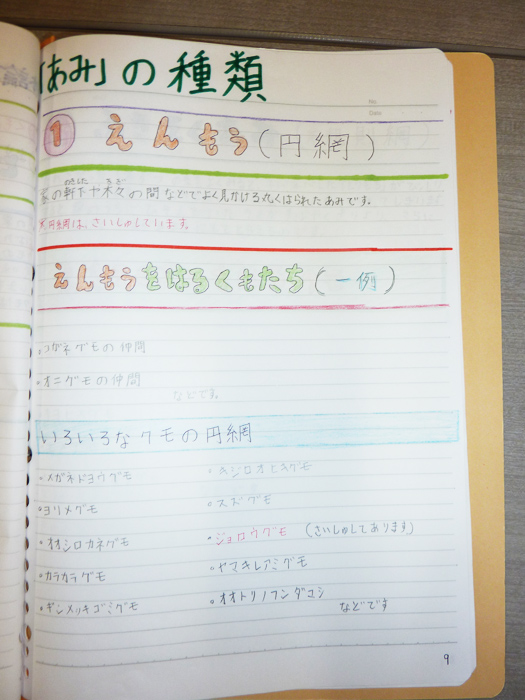 「あみ」の種類
No.
Date
1 えんもう(円網)
家の軒下や木々の間などでよく見かける丸くはられたあみです。
※円網は、さいしゅしています。
えんもうをはるくもたち(一例)
・コガネグモの仲間
・オニグモの仲間
などです。
いろいろなクモの円網
・メガネドヨウグモ
・ヨリメグモ
・オオシロカネグモ
・カラカラグモ
・ギンメッキゴミグモ
・ジョロウグモ (さいしゅしてあります)
・ヤマキレアミグモ
・オオトリノフンダマシ
などです
9